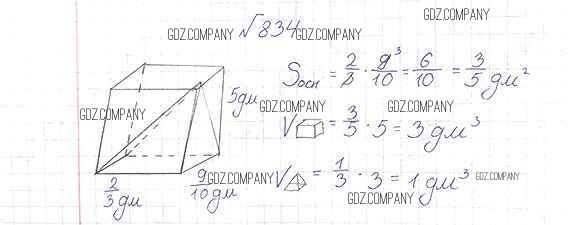 GDZ.COMPANY
GDZ.COMPANY № 834 GDZ.COMPANY
Sосн = 2/3 · 9³/10 = 6/10 = 3/5 дм²
5дм
GDZ.COMPANY GDZ.COMPANY GDZ.COMPANY
V = 3/5 · 5 = 3 дм³
V = 1/3 · 3 = 1 дм³ GDZ.COMPANY
2/3 дм 9/10 дм GDZ.COMPANY
GDZ.COMPANY